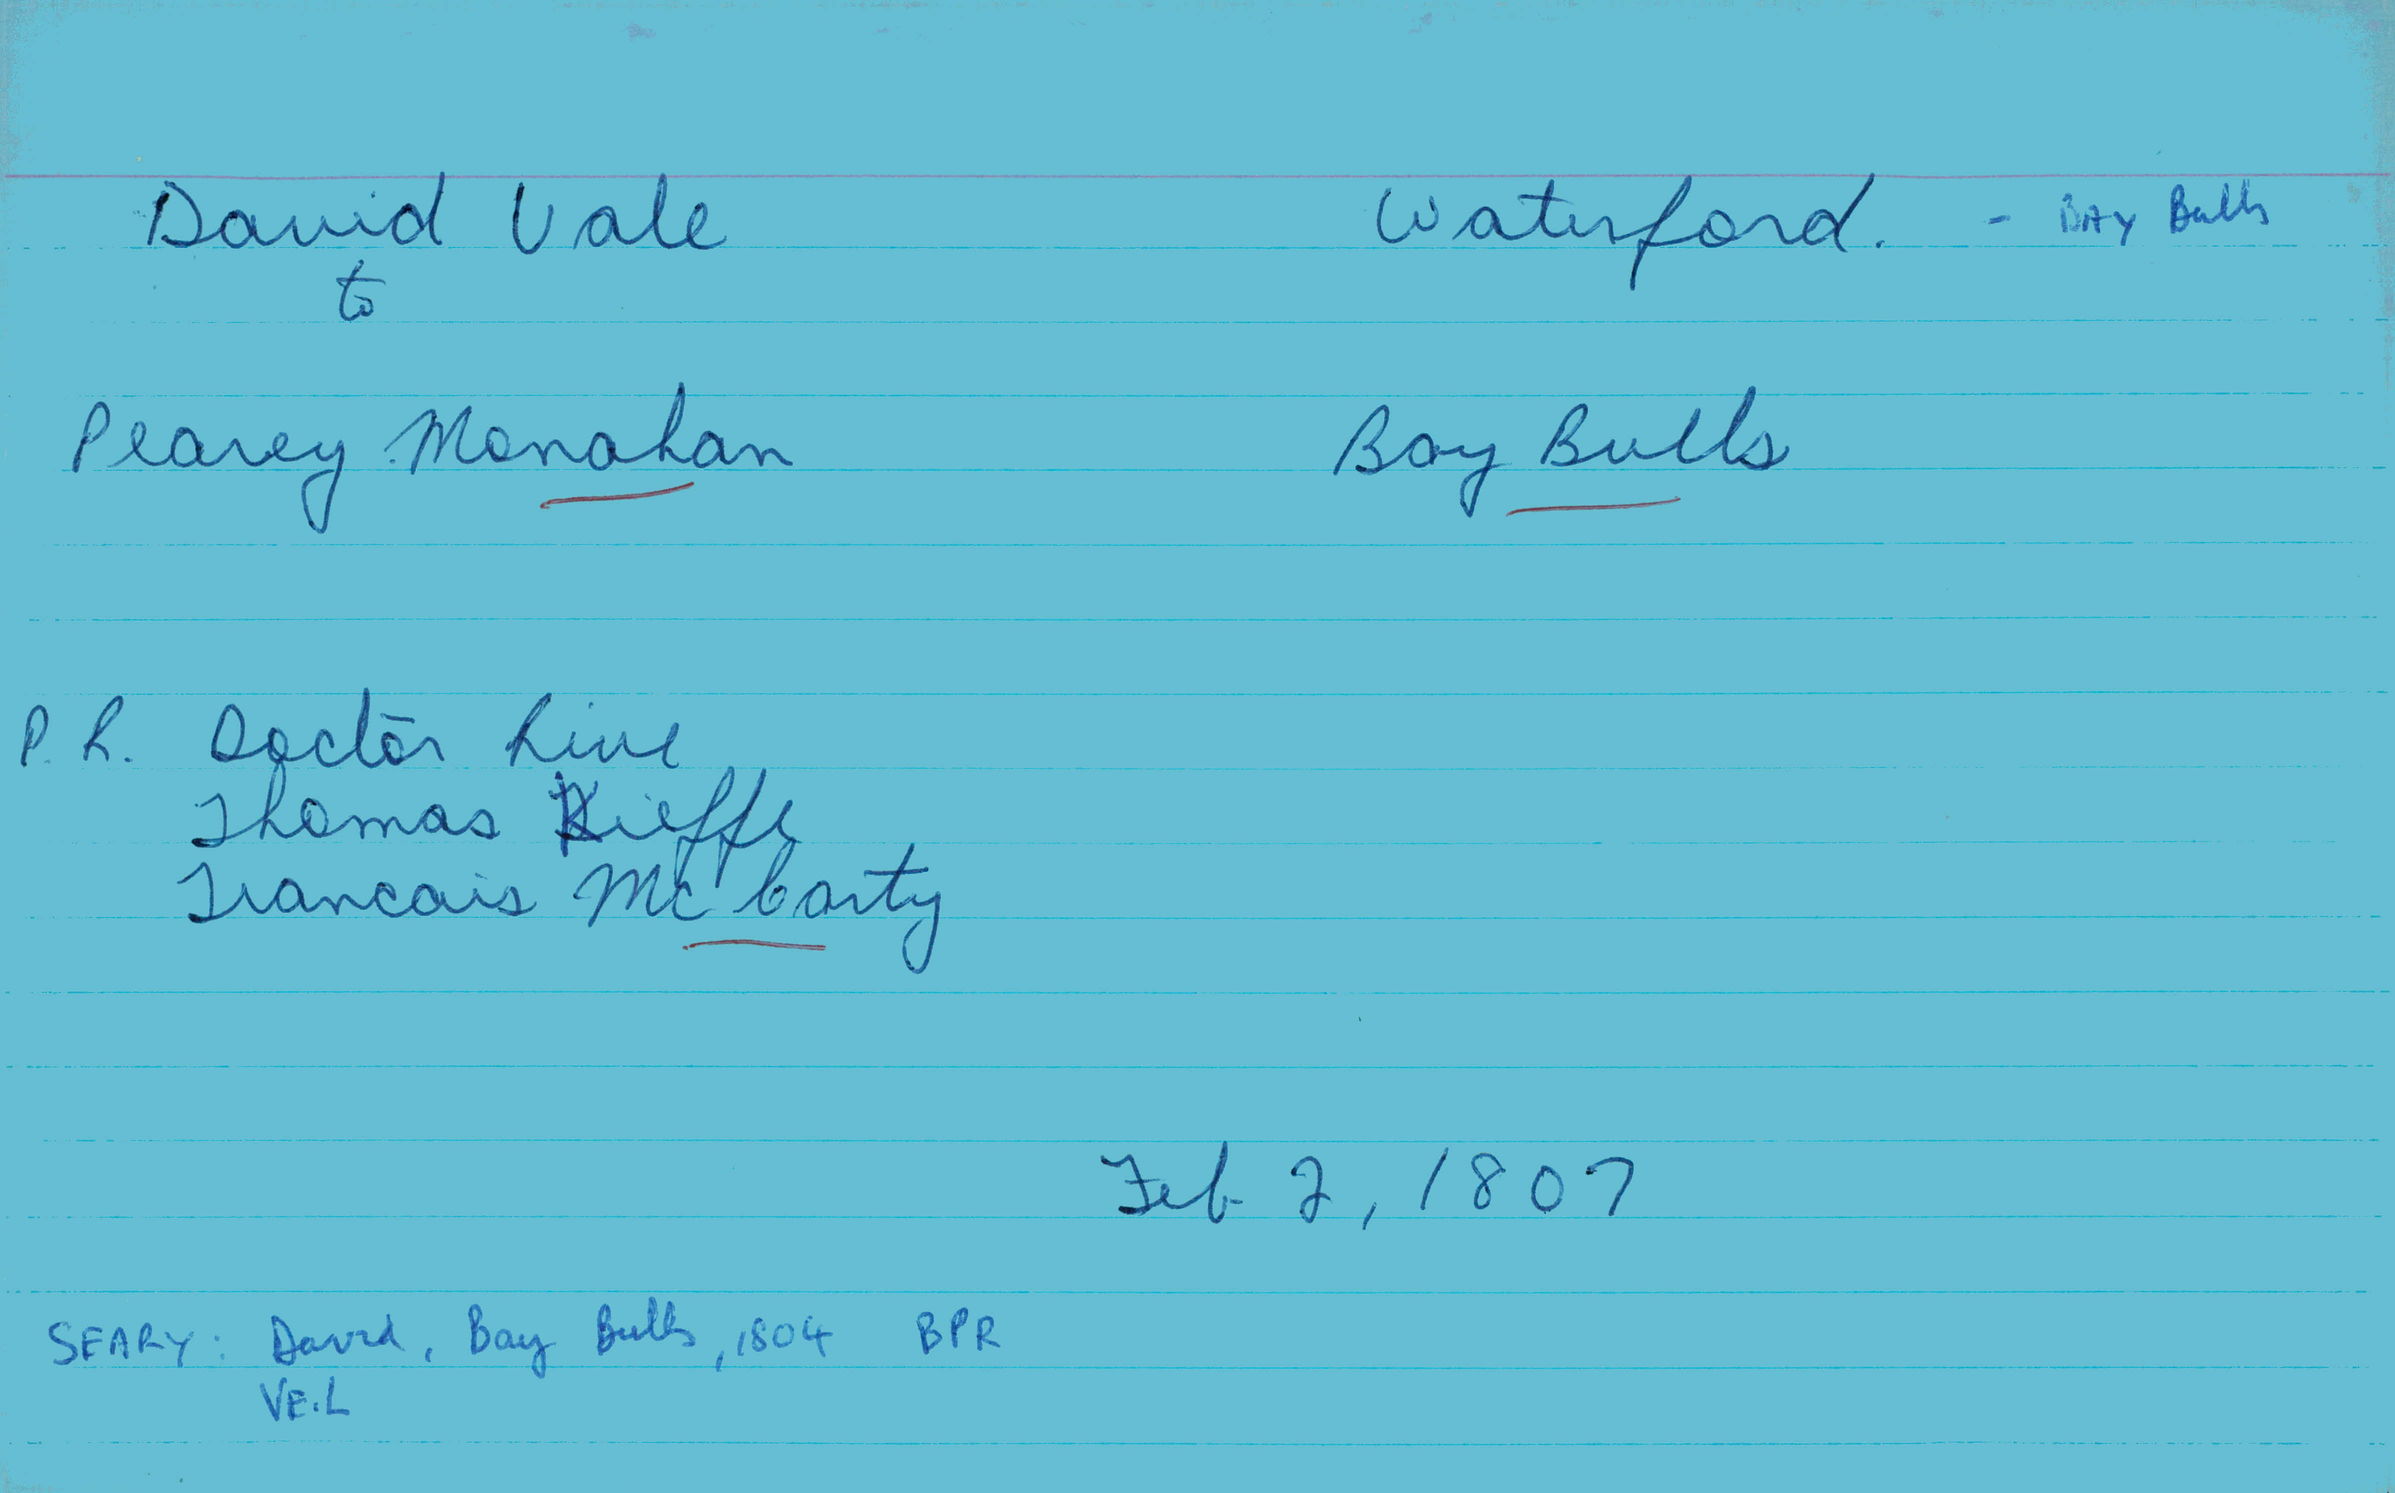 David Vale Waterford. - BAY Bulls
to
Pearey Monahan Bay Bulls
P.R. Doctor
Thomas Kieffe
Francais McCarty
Feb 2, 1807
SEARY: David, Bay Bulls, 1804 BPR
VEIL